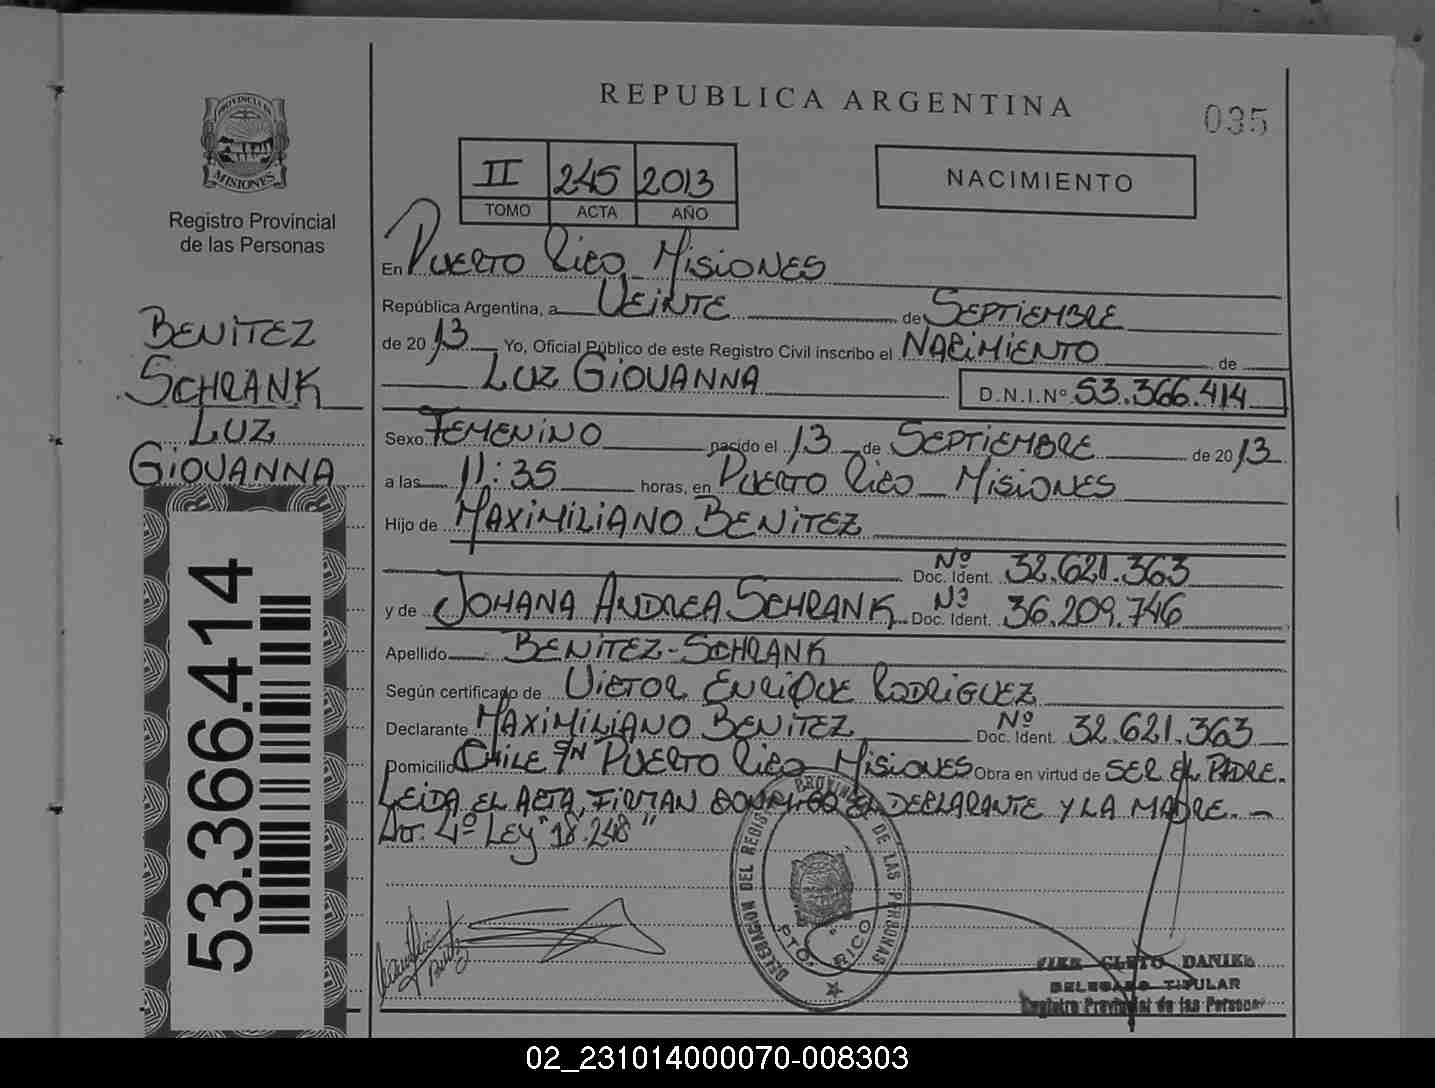 REPUBLICA ARGENTINA
035
PROVINCIA DE
MISIONES
Registro Provincial
de las Personas
II 245 2013
TOMO ACTA AÑO
NACIMIENTO
En PUERTO RICO MISIONES
República Argentina, a VEINTE de SEPTIEMBRE
de 2013 Yo, Oficial Público de este Registro Civil inscribo el NACIMIENTO de
LUZ GIOVANNA D.N.I.Nº 53.366.414
Sexo FEMENINO nacido el 13 de SEPTIEMBRE de 2013
a las 11:35 horas, en PUERTO RICO MISIONES
Hijo de MAXIMILIANO BENITEZ
Doc. Ident. Nº 32.621.363
y de JOHANA ANDREA SCHRANK Doc. Ident. Nº 36.209.746
Apellido BENITEZ-SCHRANK
Según certificado de VICTOR ENRIQUE RODRIGUEZ
Declarante MAXIMILIANO BENITEZ Doc. Ident. Nº 32.621.363
Domicilio CHILE S/N PUERTO RICO MISIONES Obra en virtud de SER EL PADRE.
LEIDA EL ACTA, FIRMAN CONMIGO EL DECLARANTE Y LA MADRE. -
Art. 4º LEY "18.248"
BENITEZ
SCHRANK
LUZ
GIOVANNA
53.366.414
DELEGACION DEL REGISTRO PROVINCIAL DE LAS PERSONAS
PTO. RICO
CLETO DANIEL
DELEGADO TITULAR
Registro Provincial de las Personas
02_231014000070-008303